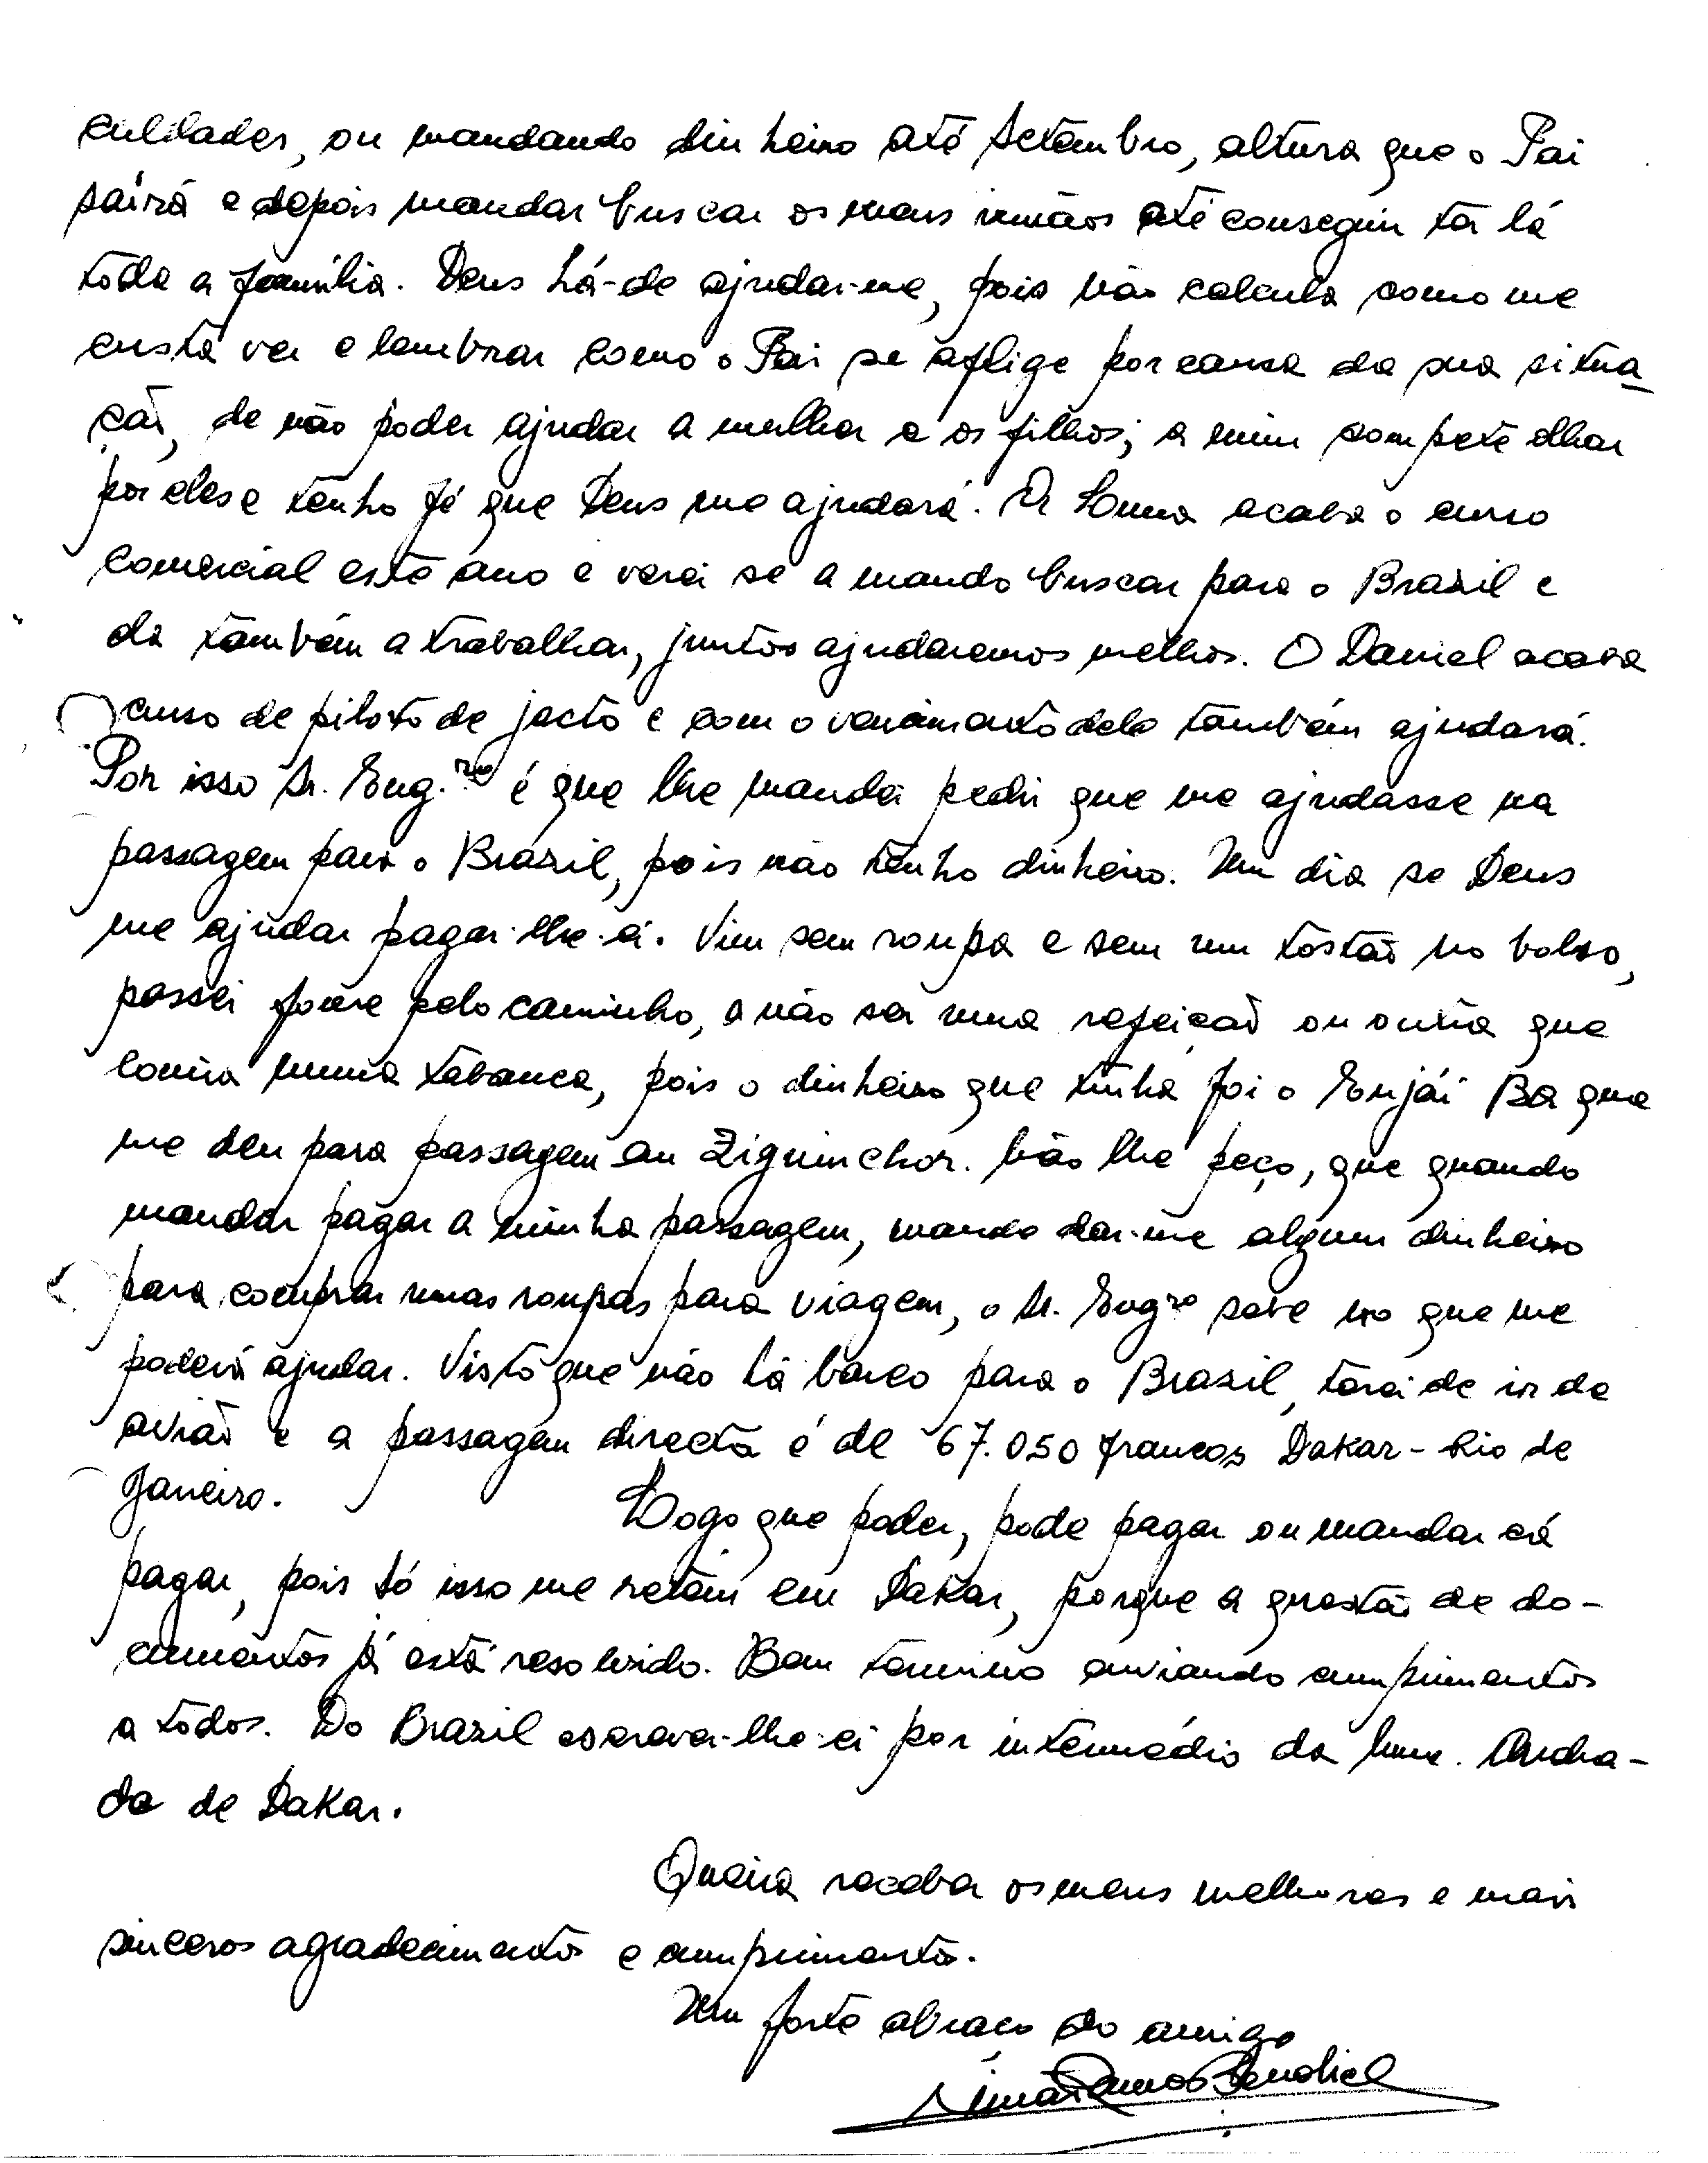 culdades, ou mandando dinheiro até Setembro, altura que o Pai
sairá e depois mandar buscar os meus irmãos até conseguir ter lá
toda a família. Deus há-de ajudar-me, pois não calcula como me
custa ver e lembrar como o Pai se aflige por causa da sua situa
ção, de não poder ajudar a mulher e os filhos; a mim compete olhar
por eles e tenho fé que Deus me ajudará. A acaba o curso
comercial este ano e verei se a mando buscar para o Brasil e
ela também a trabalhar, juntos ajudaremos melhor. O Daniel acaba
curso de piloto de jacto e com o vencimento dele também ajudará.
Por isso Sr. Eng.ro é que lhe mandei pedir que me ajudasse na
passagem para o Brasil, pois não tenho dinheiro. Um dia se Deus
me ajudar pagar-lhe-ei. Vim sem roupa e sem um tostão no bolso,
passei fome pelo caminho, a não ser uma refeição ou outra que
comia numa tabanca, pois o dinheiro que tinha foi o Enjái Ba que
me deu para passagem em Ziguinchor. Não lhe peço, que quando
mandar pagar a minha passagem, mande dar-me algum dinheiro
para comprar umas roupas para viagem, o Sr. Engro sabe no que me
poderá ajudar. Visto que não há barco para o Brasil, terei de ir de
avião e a passagem directa é de 67.050 francos Dakar - Rio de
Janeiro. Logo que poder, pode pagar ou mandar cá
pagar, pois só isso me retém em Dakar, porque a questão de do-
cumentos já está resolvido. Bem termino enviando cumprimentos
a todos. Do Brazil escrever-lhe-ei por intermédio da Mme. Andra-
de de Dakar.
Queira receber os meus melhores e mais
sinceros agradecimentos e cumprimentos.
Um forte abraço do amigo